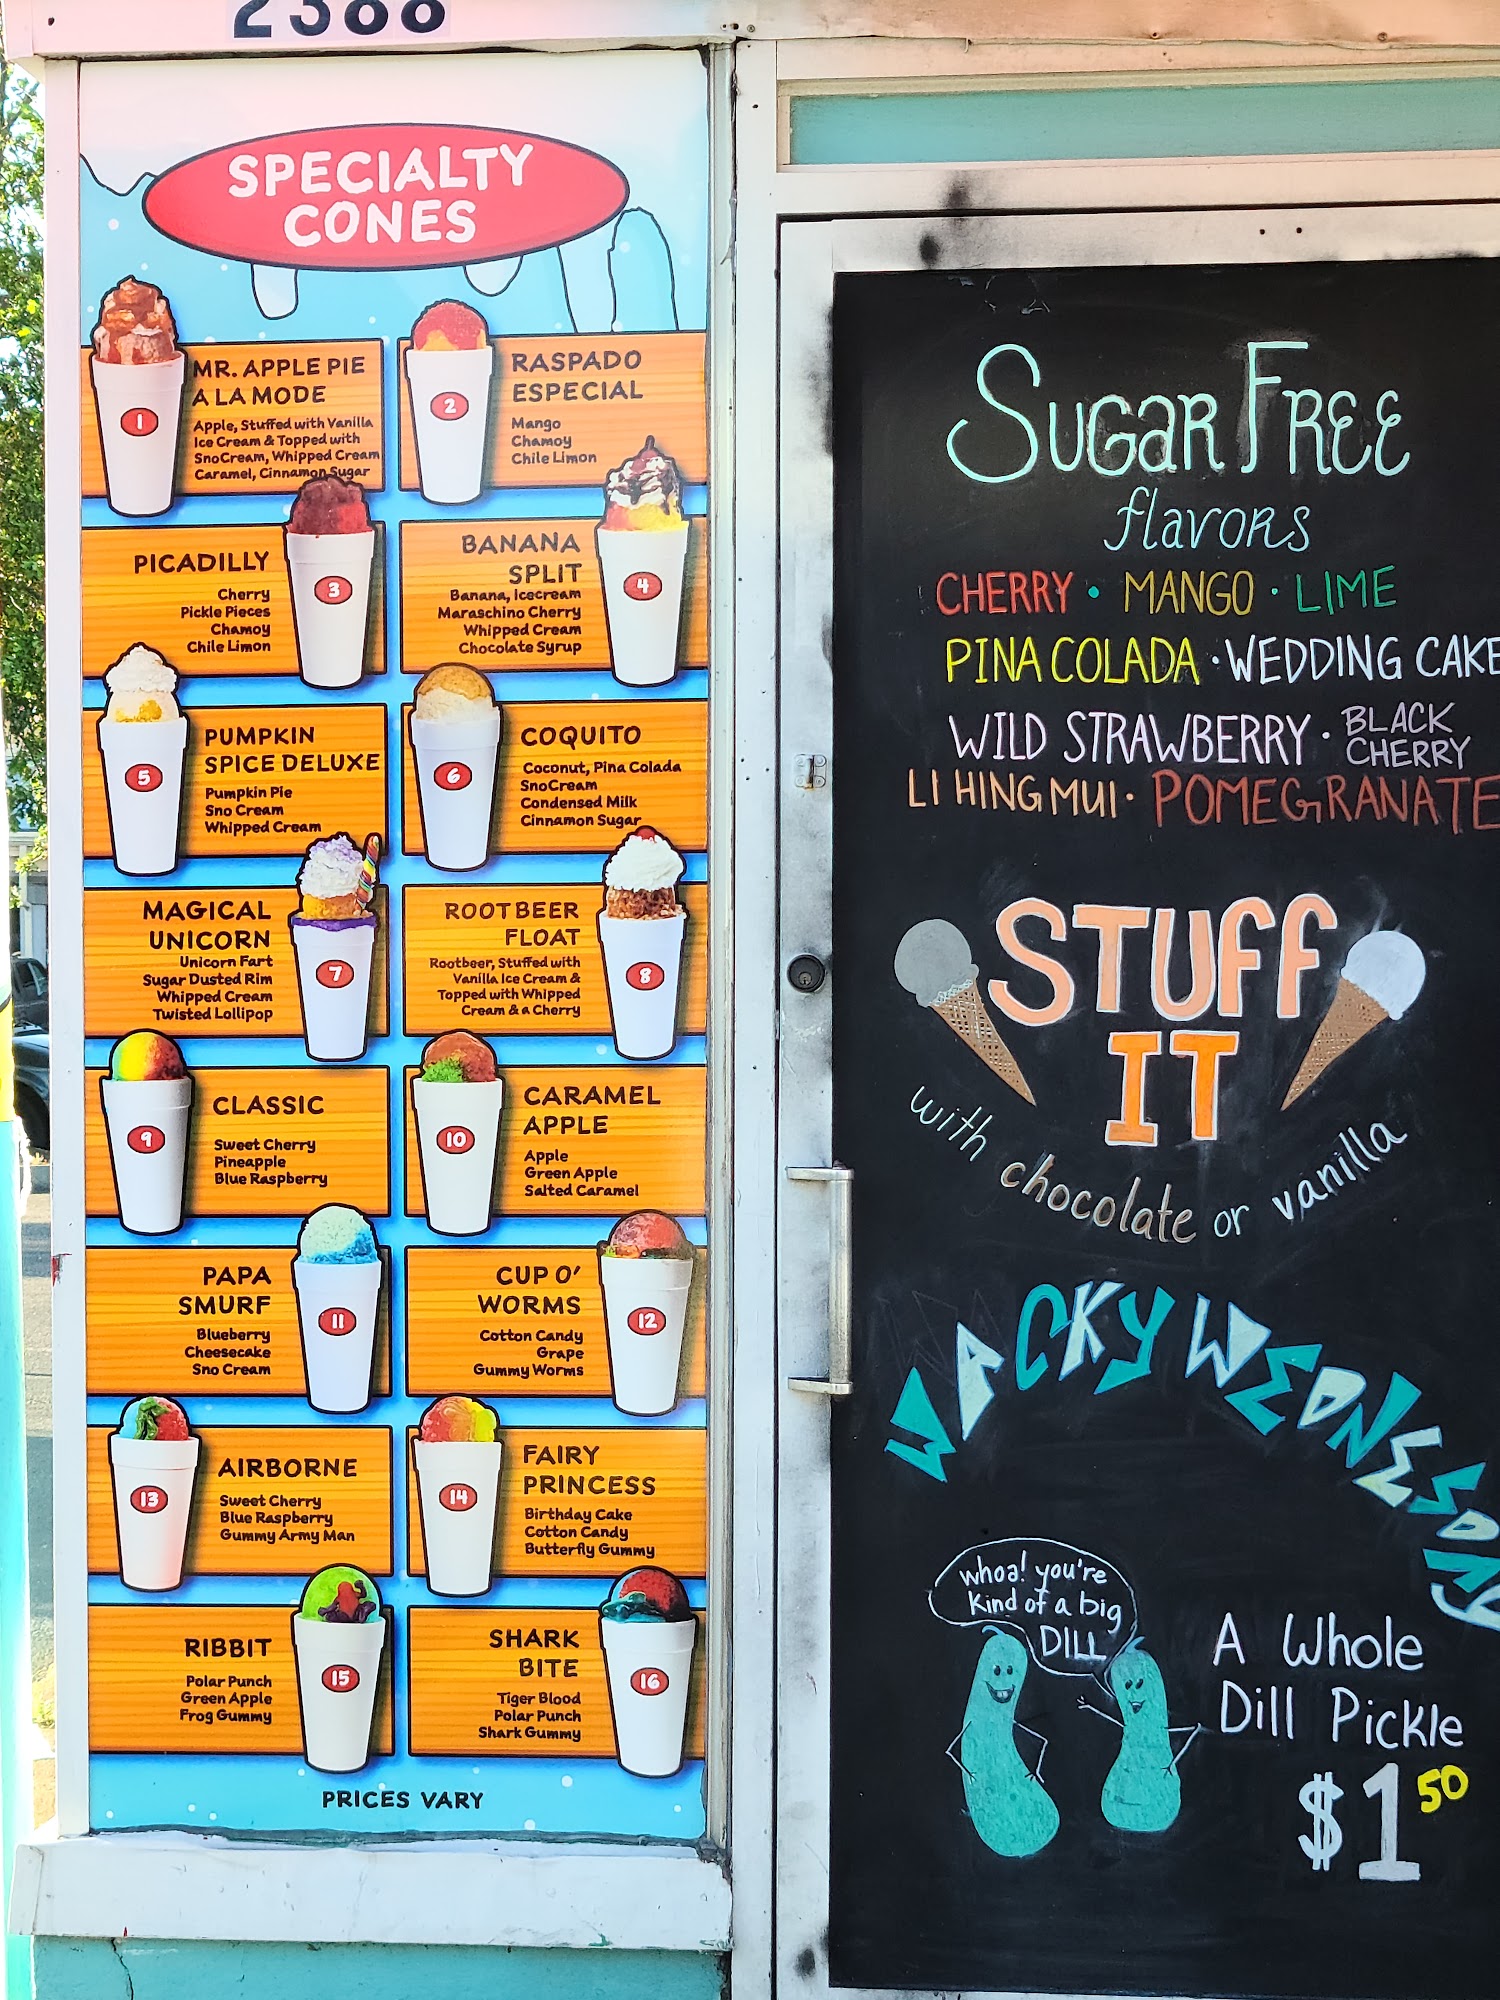 2388
SPECIALTY
CONES
1
MR. APPLE PIE
A LA MODE
Apple, Stuffed with Vanilla
Ice Cream & Topped with
SnoCream, Whipped Cream
Caramel, Cinnamon Sugar
2
RASPADO
ESPECIAL
Mango
Chamoy
Chile Limon
PICADILLY
Cherry
Pickle Pieces
Chamoy
Chile Limon
3
BANANA
SPLIT
Banana, Icecream
Maraschino Cherry
Whipped Cream
Chocolate Syrup
4
5
PUMPKIN
SPICE DELUXE
Pumpkin Pie
Sno Cream
Whipped Cream
6
COQUITO
Coconut, Pina Colada
SnoCream
Condensed Milk
Cinnamon Sugar
MAGICAL
UNICORN
Unicorn Fart
Sugar Dusted Rim
Whipped Cream
Twisted Lollipop
7
ROOTBEER
FLOAT
Rootbeer, Stuffed with
Vanilla Ice Cream &
Topped with Whipped
Cream & a Cherry
8
9
CLASSIC
Sweet Cherry
Pineapple
Blue Raspberry
10
CARAMEL
APPLE
Apple
Green Apple
Salted Caramel
PAPA
SMURF
Blueberry
Cheesecake
Sno Cream
11
CUP O'
WORMS
Cotton Candy
Grape
Gummy Worms
12
13
AIRBORNE
Sweet Cherry
Blue Raspberry
Gummy Army Man
14
FAIRY
PRINCESS
Birthday Cake
Cotton Candy
Butterfly Gummy
RIBBIT
Polar Punch
Green Apple
Frog Gummy
15
SHARK
BITE
Tiger Blood
Polar Punch
Shark Gummy
16
PRICES VARY
SUGAR FREE
flavors
CHERRY · MANGO · LIME
PINA COLADA · WEDDING CAKE
WILD STRAWBERRY · BLACK
CHERRY
LI HING MUI · POMEGRANATE
STUFF
IT
with chocolate or vanilla
WACKY WEDNESDAY
whoa! you're
kind of a big
DILL
A Whole
Dill Pickle
$1 50